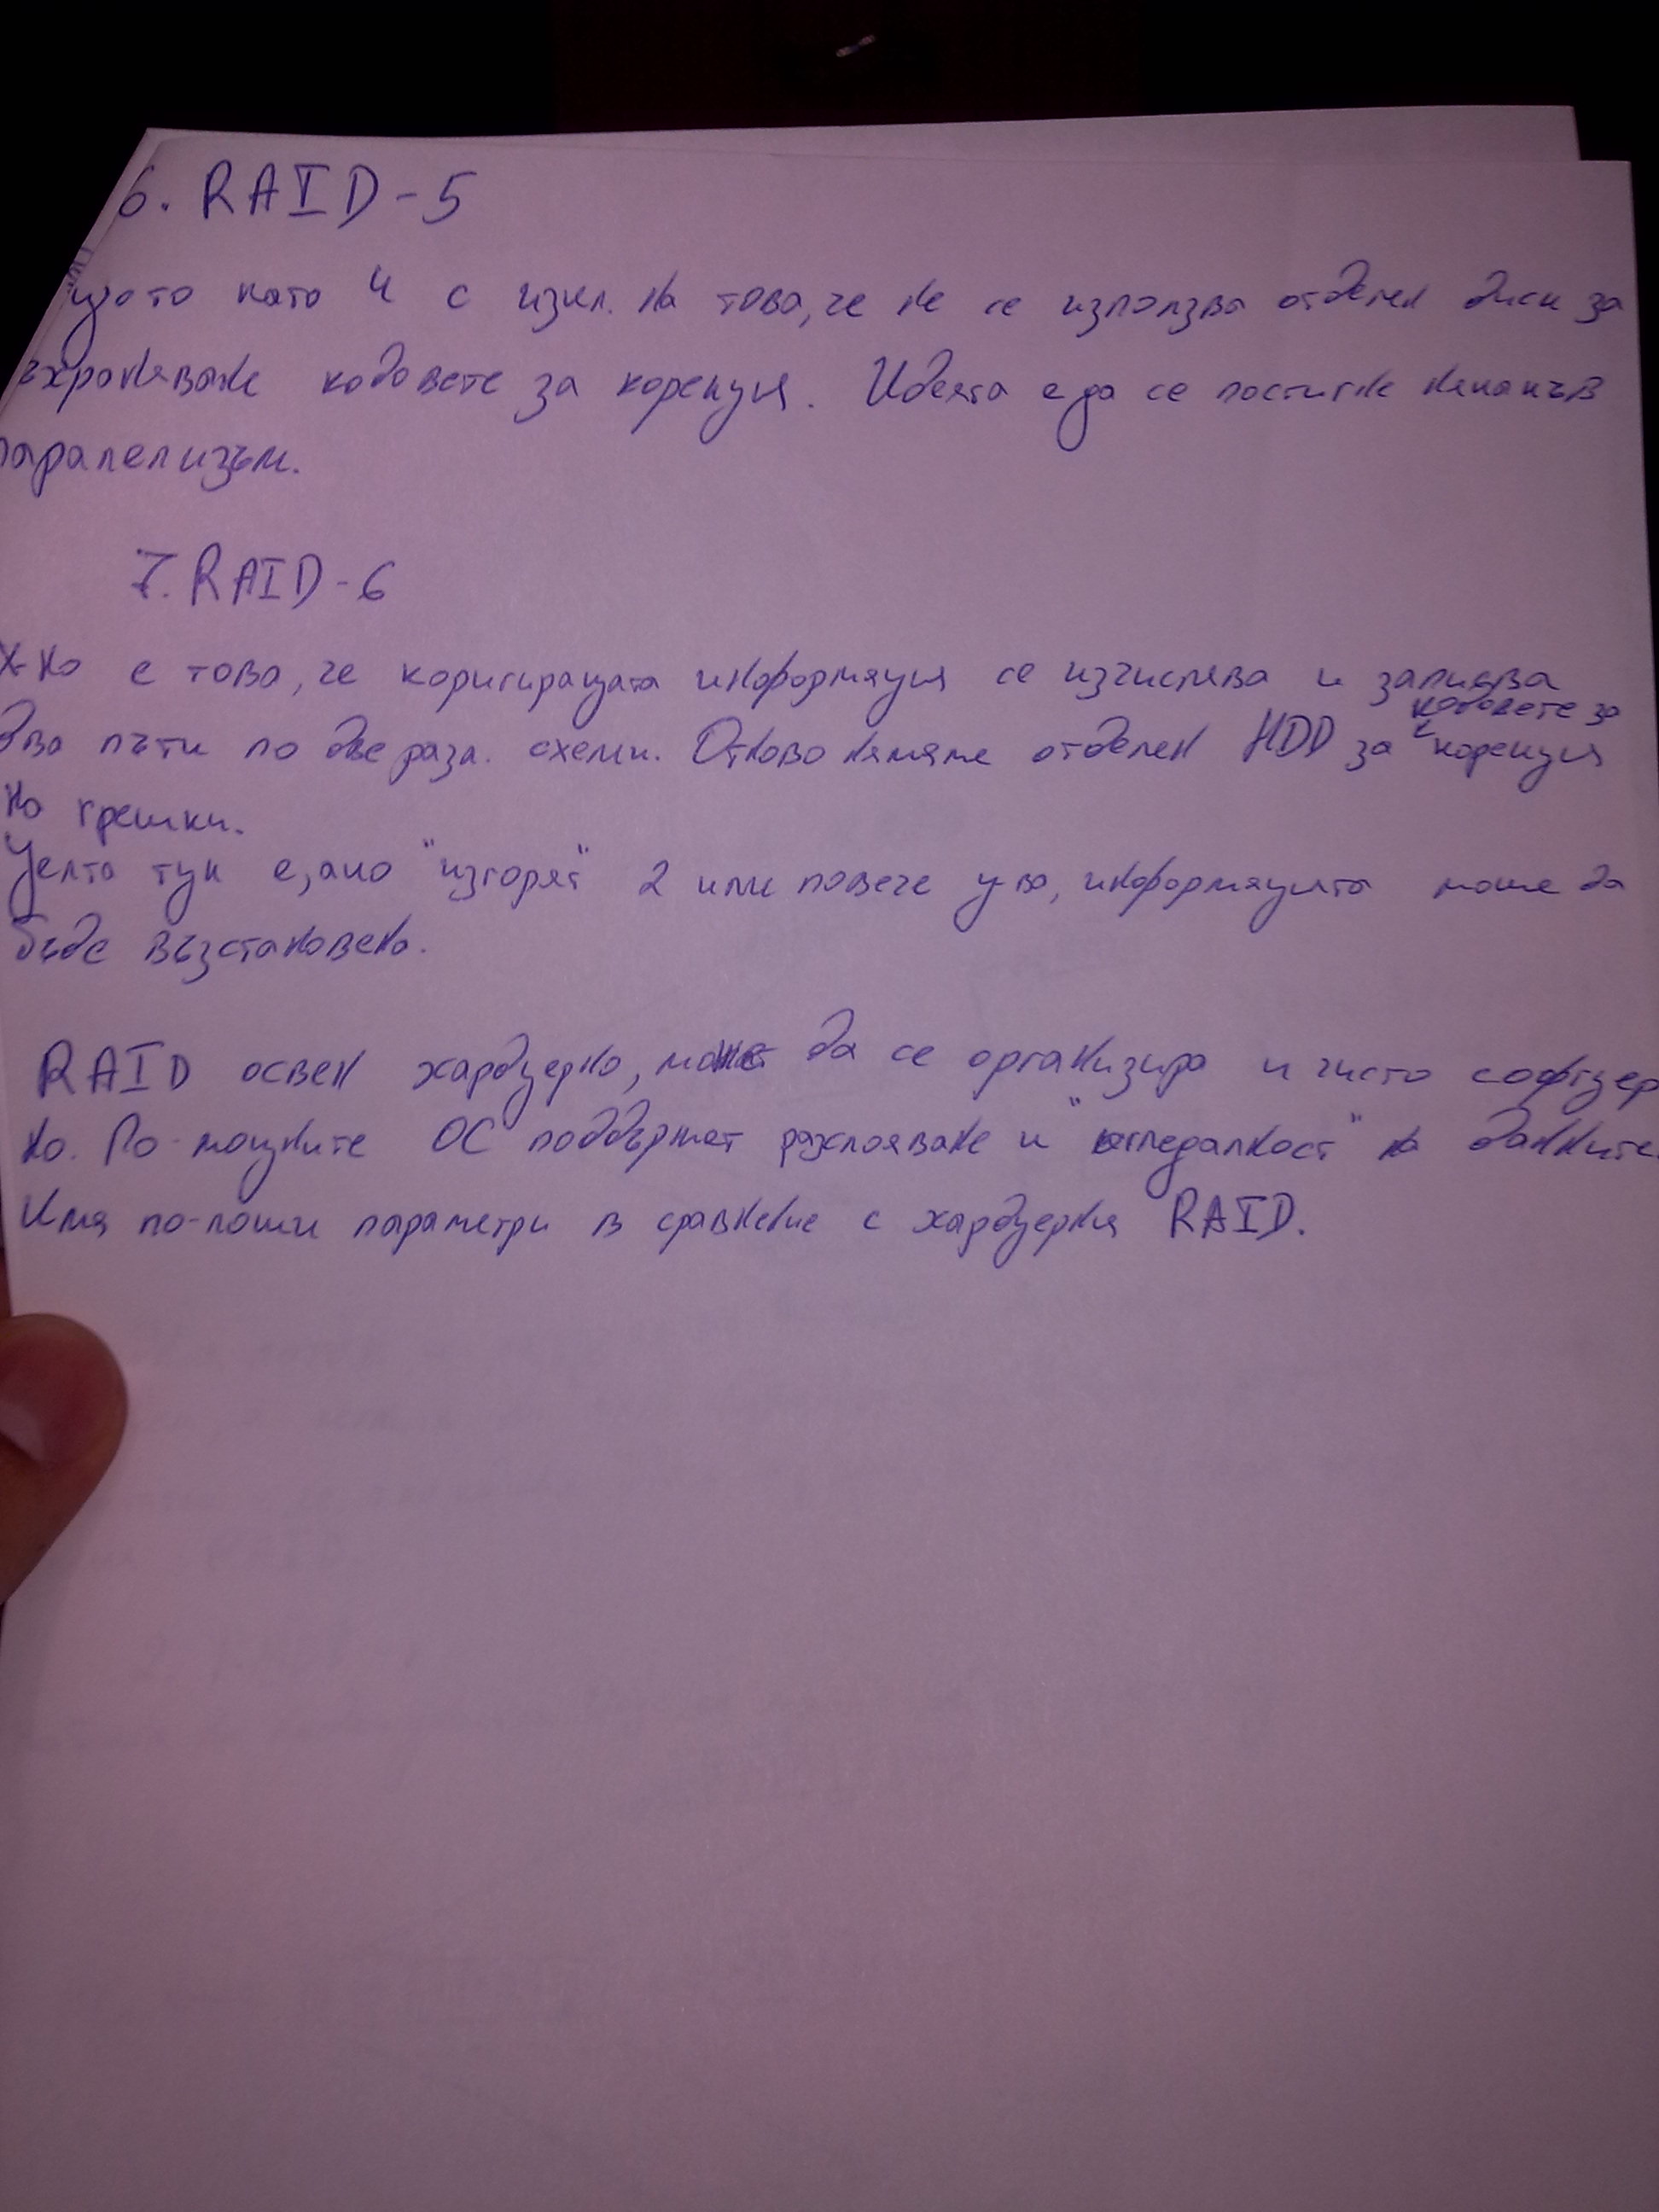 6. RAID-5
като 4 с изкл. на това, че не се използва отделен диск за
кодовете за корекция. Идеята е да се постигне някакъв
паралелизъм.
7. RAID-6
Х-но е това, че коригиращата информация се изчислява и записва
кодовете за
два пъти по две разл. схеми. Отново нямаме отделен HDD за корекция
на грешки.
Целта тук е, ако "изгорят" 2 или повече у-ва, информацията може да
бъде възстановена.
RAID освен хардуерно, може да се организира и чисто софтуер
но. По-мощните ОС поддържат разслояване и "огледалност" на данните.
Има по-лоши параметри в сравнение с хардуерния RAID.